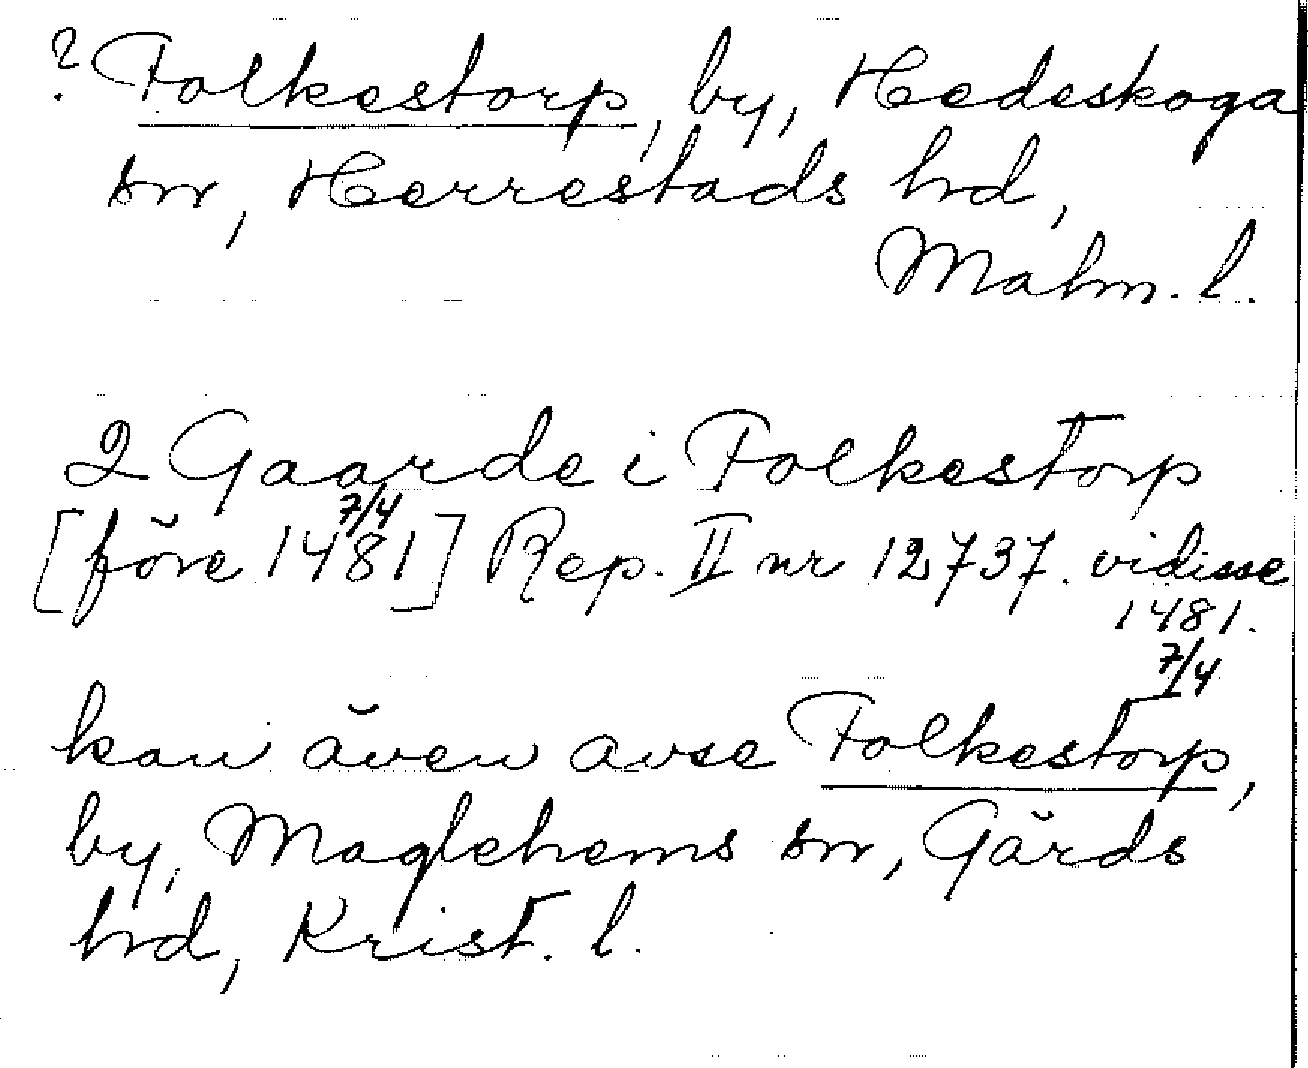 ? Folkestorp, by, Hedeskoga
sn, Herrestads hd,
Malm. l.
2 Gaarde i Folkestorp
[före 1481 7/4] Rep. II nr 12737. vidisse
1481.
7/4
kan även avse Folkestorp,
by, Maglehems sn, Gärds
hd, Krist. l.